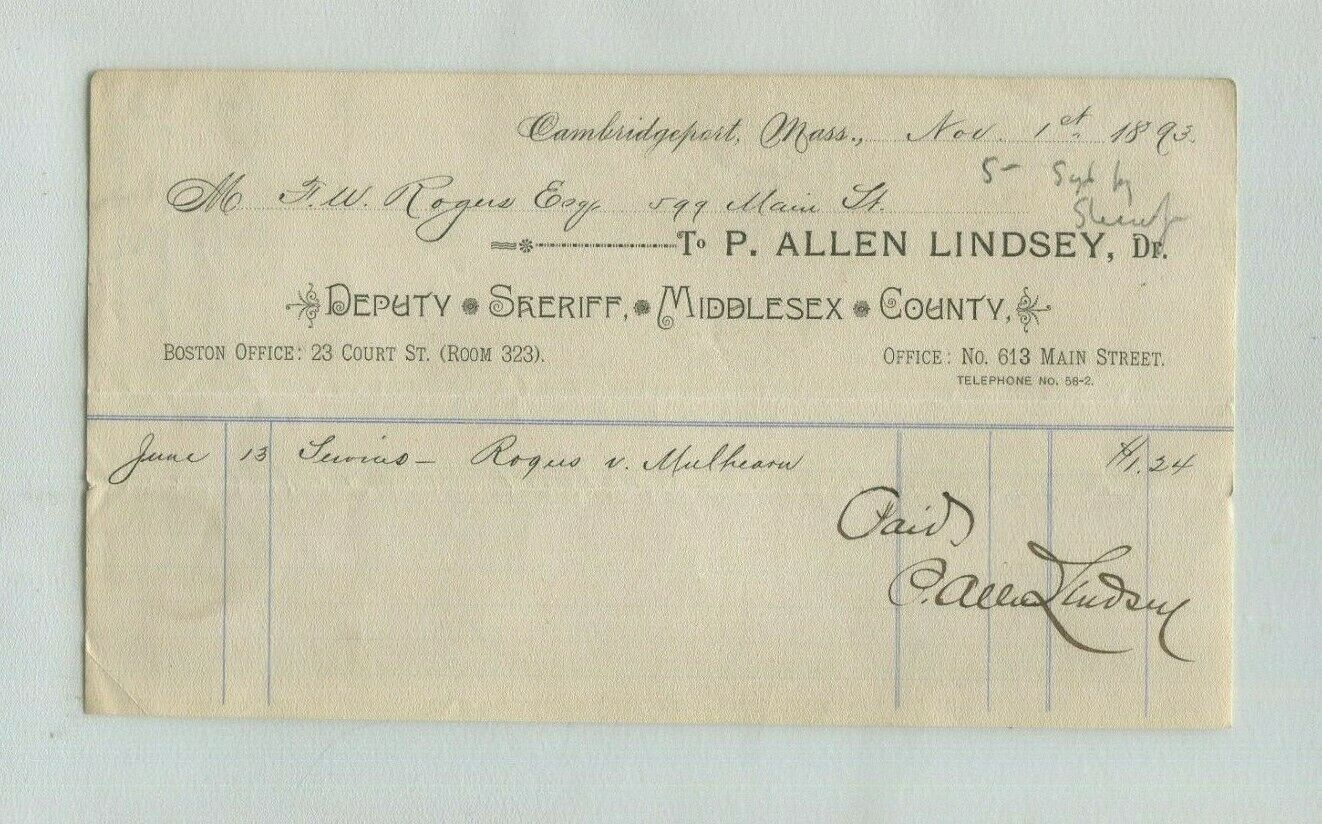 Cambridgeport, Mass., Nov. 1st 1893.
5- Sgd by
Sheriff
M F. W. Rogers Esq. 599 Main St.
To P. ALLEN LINDSEY, Dr.
DEPUTY SHERIFF, MIDDLESEX COUNTY,
BOSTON OFFICE: 23 COURT ST. (ROOM 323).
OFFICE: No. 613 MAIN STREET.
TELEPHONE NO. 58-2.
June 13 Rogers v. Mulhearn $1.24
Paid,
P. Allen Lindsey